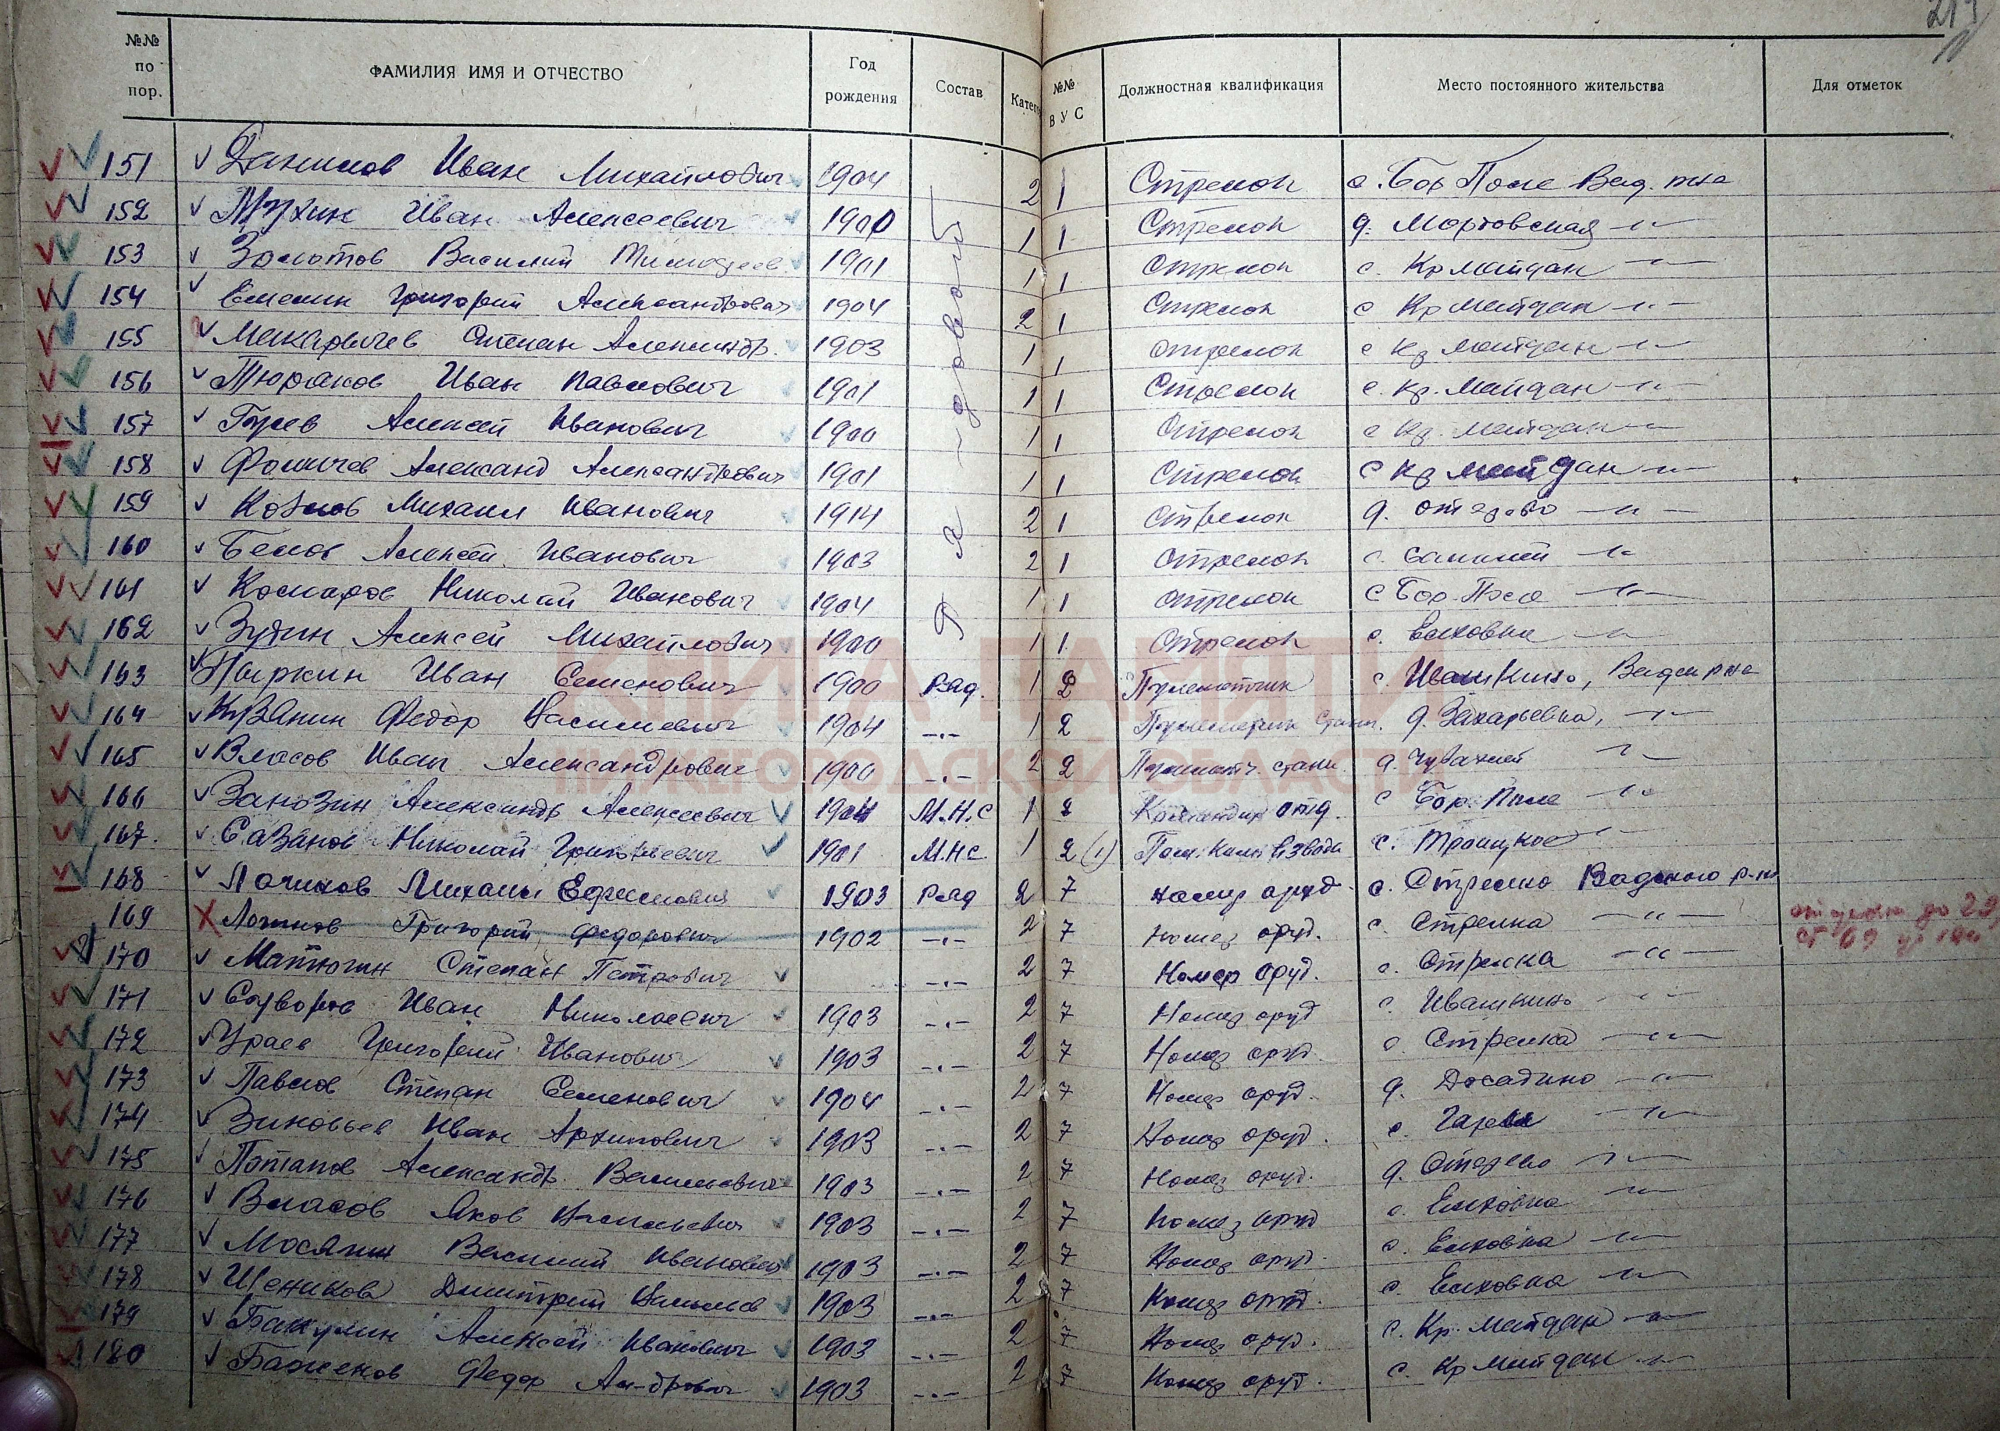 №№ по пор. ФАМИЛИЯ ИМЯ И ОТЧЕСТВО Год рождения Состав Катег №№ ВУС Должностная квалификация Место постоянного жительства Для отметок
151 Данилов Иван Михайлович 1904 2 1 Стрелок с. Бор Поле Вад. р-на
152 Мухин Иван Алексеевич 1900 1 1 Стрелок д. Мордовская -"-
153 Золотов Василий Тимофеев. 1901 1 1 Стрелок с. Кр Майдан -"-
154 Емелин Григорий Александрович 1904 2 1 Стрелок с Кр Майдан -"-
155 Макарычев Степан Александр. 1903 1 1 Стрелок с Кр Майдан -"-
156 Тюряков Иван Павлович 1901 1 1 Стрелок с. Кр. Майдан -"-
157 Гусев Алексей Иванович 1900 1 1 Стрелок с Кр. Майдан -"-
158 Фомичев Александ Александрович 1901 1 1 Стрелок с Кр Майдан -"-
159 Козлов Михаил Иванович 1914 2 1 Стрелок д. -"-
160 Белов Алексей Иванович 1903 2 1 Стрелок с. -"-
161 Комаров Николай Иванович 1904 1 1 Стрелок с Бор. Поле -"-
162 Зудин Алексей Михайлович 1900 1 1 Стрелок с. Елховка -"-
Рядовой
163 Пыркин Иван Семенович 1900 Ряд. 1 2 Пулеметчик с. Ивашкино, Вадск р-на
164 Кузанин Федор Васильевич 1904 -.- 1 2 Пулеметчик станк. д. Захарьевка, -"-
165 Власов Иван Александрович 1900 -.- 2 2 Пулеметч. станк. д. -"-
166 Занозин Александр Алексеевич 1904 М.Н.С 1 2 Командир отд. с Бор. Поле -"-
167. Сазанов Николай Григорьевич 1901 М.Н.С. 1 2 (1) Пом. Ком. взвода с. Троицкое -"-
168 Лачинов Михаил Ефимович 1903 Ряд 2 7 Номер оруд. с. Стрелка Вадского р-на
169 Логинов Григорий Федорович 1902 -.- 2 7 Номер оруд. с. Стрелка -"- до
170 Матюгин Степан Петрович -.- 2 7 Номер оруд. с. Стрелка -"-
171 Суворов Иван Николаевич 1903 -.- 2 7 Номер оруд с. Ивашкино -"-
172 Ураев Григорий Иванович 1903 -.- 2 7 Номер оруд. с. Стрелка -"-
173 Павлов Степан Семенович 1904 -.- 2 7 Номер оруд. д. Досадино -"-
174 Зиновьев Иван Архипович 1903 -.- 2 7 Номер оруд. с. -"-
175 Потапов Александр. Васильевич 1903 -.- 2 7 Номер оруд. д. -"-
176 Власов Яков Васильевич 1903 -.- 2 7 Номер оруд с. Елховка -"-
177 Мосягин Василий Иванович 1903 -.- 2 7 Номер оруд. с. Елховка -"-
178 Щенников Дмитрий 1903 -.- 2 7 Номер оруд. с. Елховка -"-
179 Бакулин Алексей Иванович 1903 -.- 2 7 Номер оруд. с. Кр. Майдан -"-
180 Баженов Федор Ан-дрович 1903 -.- 2 7 Номер оруд. с. Кр Майдан -"-
КНИГА ПАМЯТИ
НИЖЕГОРОДСКОЙ ОБЛАСТИ